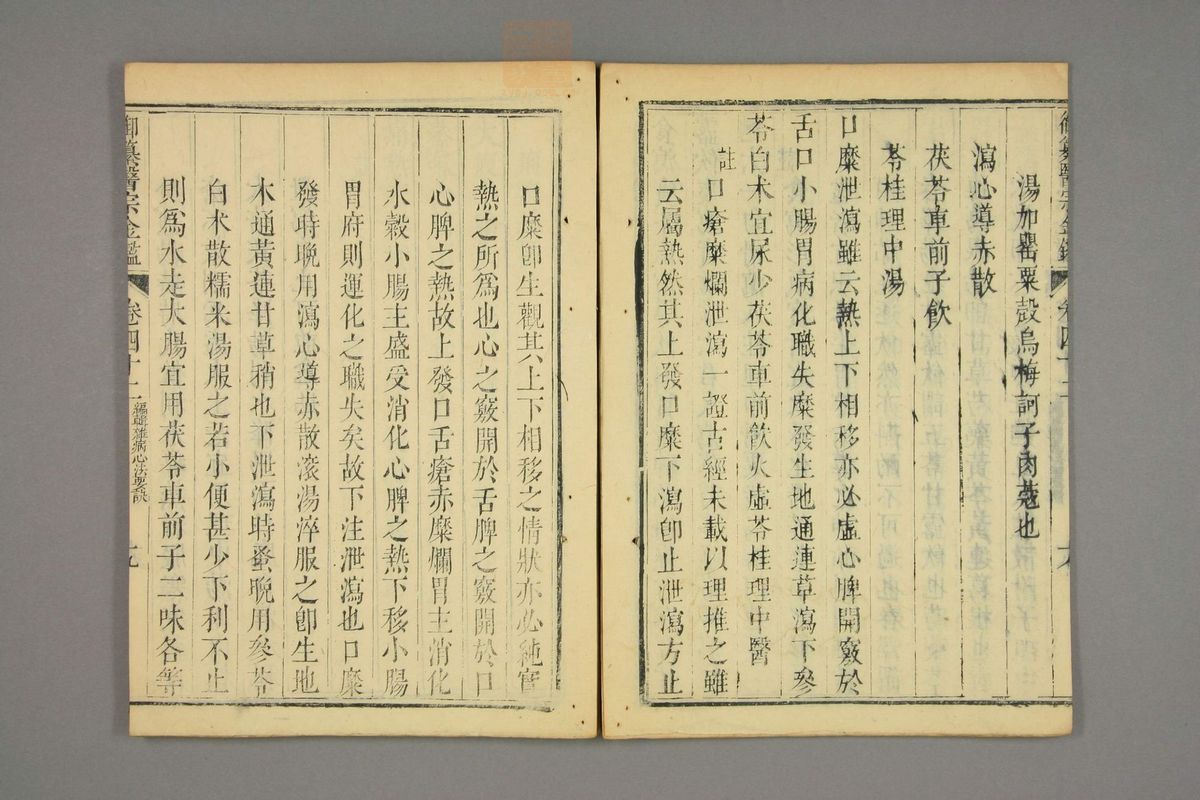 御纂醫宗金鑑 卷四十二
湯加罌粟殼烏梅訶子肉蔻也
瀉心導赤散
茯苓車前子飲
苓桂理中湯
口糜泄瀉雖云熱上下相移亦必虛心脾開竅於
舌口小腸胃病化職失糜發生地通連草瀉下參
苓白朮宜尿少茯苓車前飲火虛苓桂理中醫
註
口瘡糜爛泄瀉一證古經未載以理推之雖
云屬熱然其上發口糜下瀉卽止泄瀉方止
口糜卽生觀其上下相移之情狀亦必純實
熱之所爲也心之竅開於舌脾之竅開於口
心脾之熱故上發口舌瘡赤糜爛胃主消化
水穀小腸主盛受消化心脾之熱下移小腸
胃府則運化之職失矣故下注泄瀉也口糜
發時晚用瀉心導赤散滚湯淬服之卽生地
木通黃連甘草稍也下泄瀉時蚤晚用參苓
白朮散糯米湯服之若小便甚少下利不止
則爲水走大腸宜用茯苓車前子二味各等
御纂醫宗金鑑 卷四十二 編輯雜病心法要訣